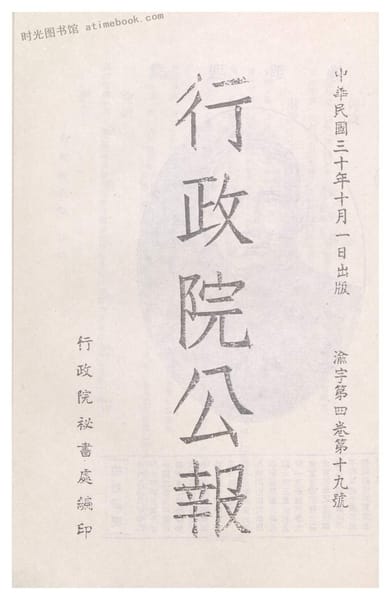 时光图书馆 atimebook.com
中華民國三十年十月一日出版 渝字第四卷第十九號
行政院公報
行政院祕書處編印